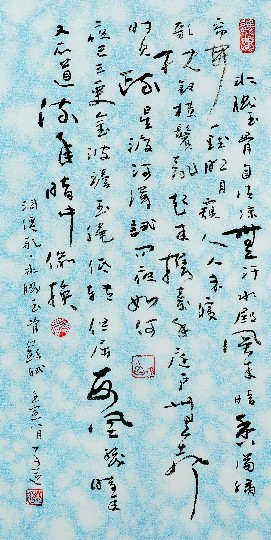 冰肌玉骨自清凉無汗水殿風来暗香滿繡
帘開一點明月窺人人未寢
欹枕釵横鬢亂起来攜素手庭户無聲
時見疏星渡河漢試問夜如何
夜已三更金波淡玉繩低轉但屈指西風幾時来
又不道流年暗中偷换
洞仙歌·冰肌玉骨蘇軾